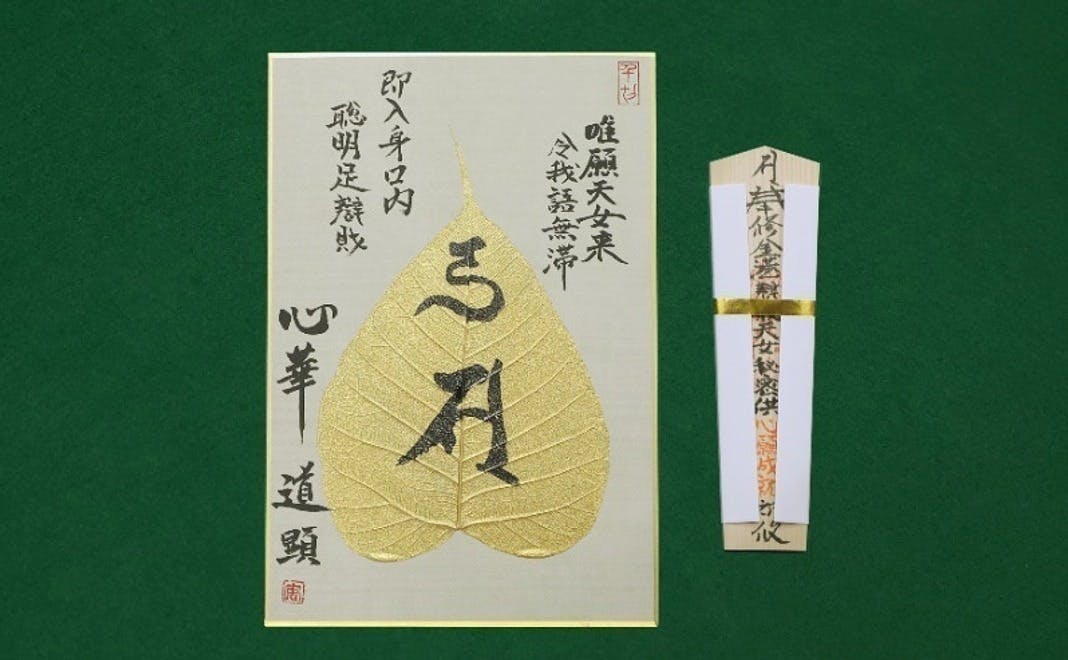 唯願天女来
令我語無滞
即入身口内
聡明足辯財
心華 道顕
修
天女秘密供
心願成就